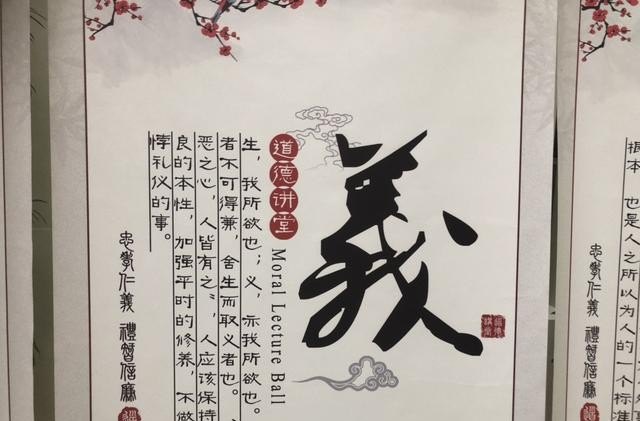 根本 也是人之所以为人的一个标准
忠孝仁義 禮智信廉
義
道德讲堂
Moral Lecture Ball
生，我所欲也；义，亦我所欲也。
者不可得兼，舍生而取义者也。
恶之心，人皆有之”，人应该保持
良的本性，加强平时的修养，不做
悖礼仪的事。
忠孝仁義 禮智信廉